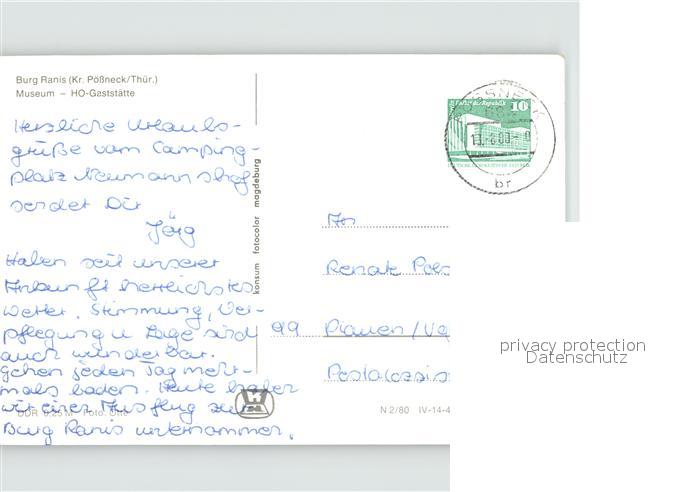 Burg Ranis (Kr. Pößneck/Thür.)
Museum – HO-Gaststätte
Herzliche Urlaubs-
grüße vom Camping-
platz Neumannshof
sendet Dir
Jörg
Haben seit unserer
Ankunft herrlichstes
Wetter. Stimmung, Ver-
pflegung u. Lage sind
auch wunderbar.
Gehen jeden Tag mehr-
mals baden. Heute haben
wir einen Ausflug zur
Burg Ranis unternommen.
DDR 0.25 M Foto:
konsum fotocolor magdeburg
Palast der Republik 10
DEUTSCHE DEMOKRATISCHE REPUBLIK
PÖSSNECK
br
An
Renate
99 Plauen
N 2/80 IV-14-4
privacy protection
Datenschutz